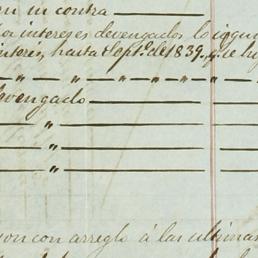 en in contra
los intereses devengados lo
interés, hasta Sept.e de 1839, q.e se
" " " " " "
devengado
"
"
"
son con arreglo á las ultimas